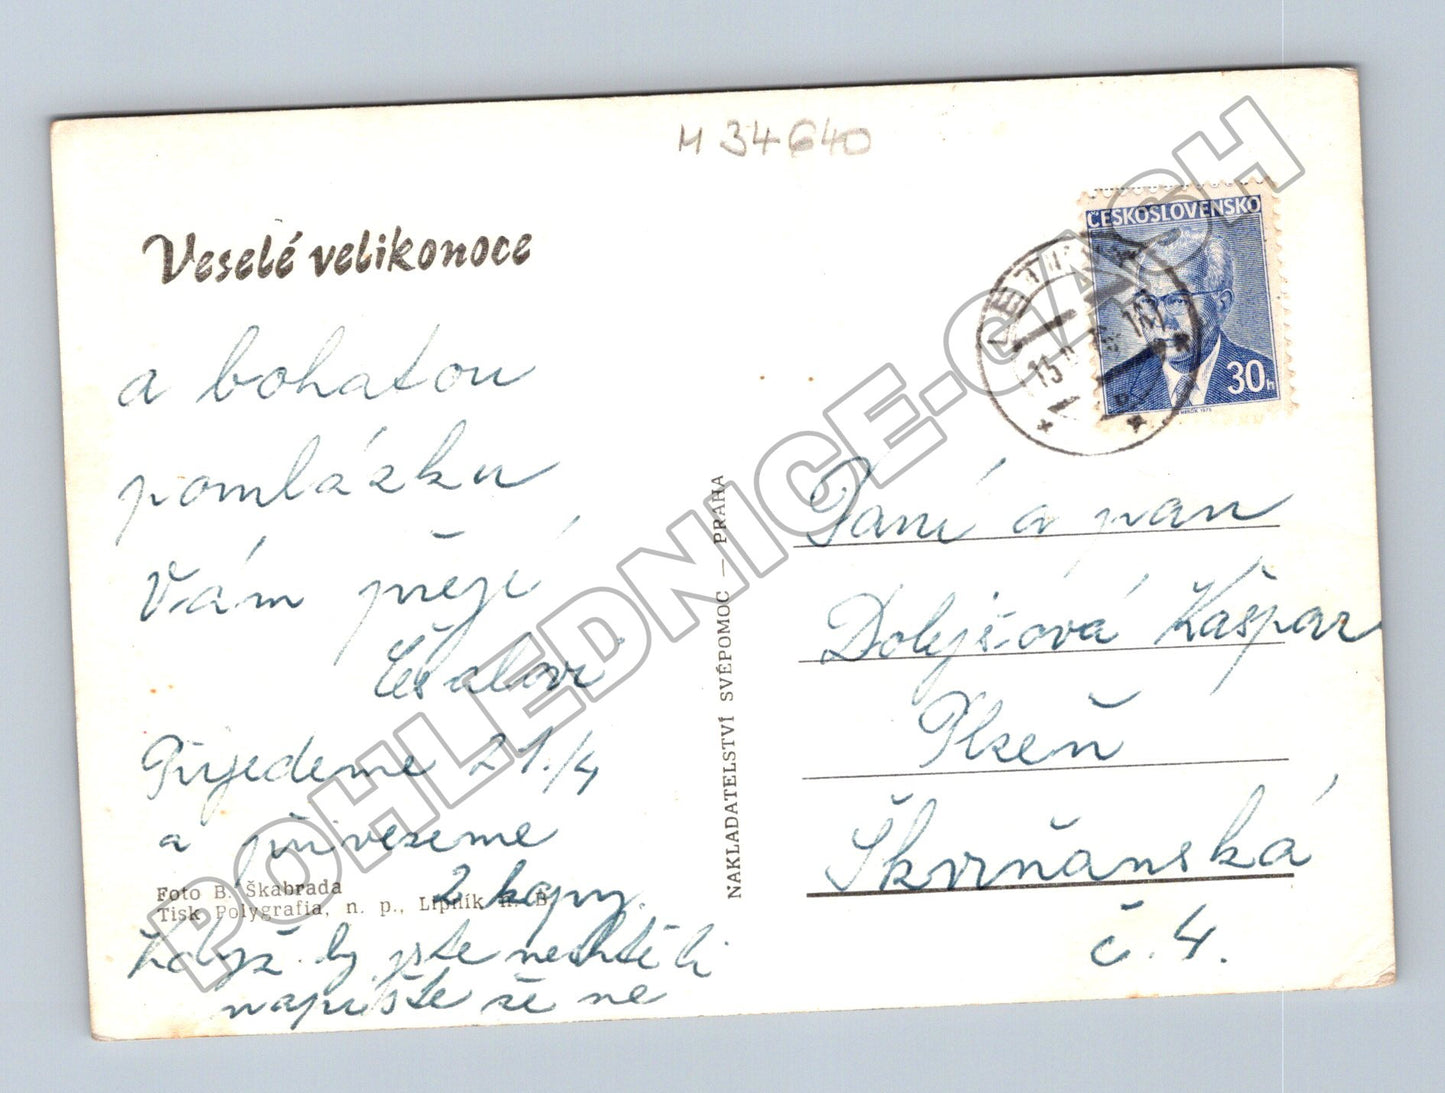 M 34640
Veselé velikonoce
a bohatou
pomlázku
Vám přejí
Češalovi
Přijedeme 21./4
a přivezeme
2 kopy.
Když by jste nechtěli
napište že ne
Foto B. Škabrada
Tisk Polygrafia, n. p., Lipník n. B.
NAKLADATELSTVÍ SVÉPOMOC — PRAHA
ČESKOSLOVENSKO
30h
Paní a pan
Dolejšová Kašpar
Plzeň
Škvrňanská
č. 4.
POHLEDNICE-CZ.CASH